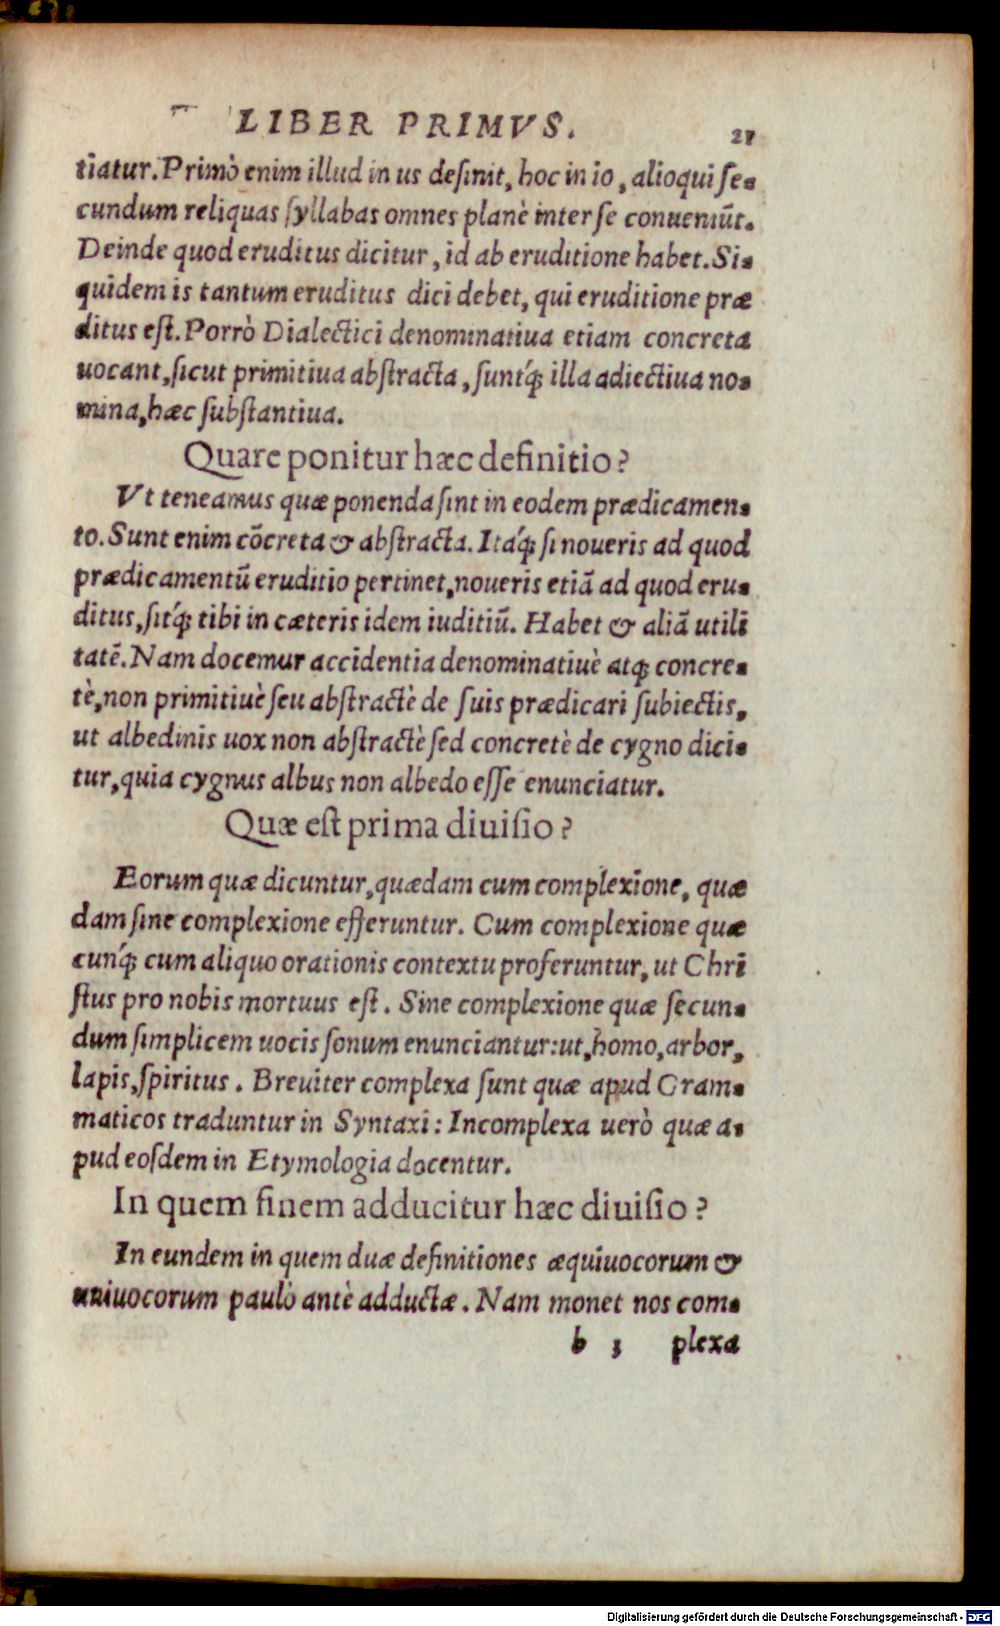 LIBER PRIMVS. 21
tiatur. Primò enim illud in us desinit, hoc in io, alioqui se-
cundum reliquas syllabas omnes planè inter se conueniũt.
Deinde quod eruditus dicitur, id ab eruditione habet. Si-
quidem is tantum eruditus dici debet, qui eruditione præ
ditus est. Porrò Dialectici denominatiua etiam concreta
uocant, sicut primitiua abstracta, suntq́; illa adiectiua no-
mina, hæc substantiua.
Quare ponitur hæc definitio?
Vt teneamus quæ ponenda sint in eodem prædicamen-
to. Sunt enim cõcreta & abstracta. Itaq́; si noueris ad quod
prædicamentũ eruditio pertinet, noueris etiã ad quod eru-
ditus, sitq́; tibi in cæteris idem iuditiũ. Habet & aliã utili
tatẽ. Nam docemur accidentia denominatiuè atq; concre-
tè, non primitiuè seu abstractè de suis prædicari subiectis,
ut albedinis uox non abstractè sed concretè de cygno dici-
tur, quia cygnus albus non albedo esse enunciatur.
Quæ est prima diuisio?
Eorum quæ dicuntur, quædam cum complexione, quæ
dam sine complexione efferuntur. Cum complexione quæ
cunq́; cum aliquo orationis contextu proferuntur, ut Chri
stus pro nobis mortuus est. Sine complexione quæ secun-
dum simplicem uocis sonum enunciantur: ut, homo, arbor,
lapis, spiritus. Breuiter complexa sunt quæ apud Gram-
maticos traduntur in Syntaxi: Incomplexa uerò quæ a-
pud eosdem in Etymologia docentur.
In quem finem adducitur hæc diuisio?
In eundem in quem duæ definitiones æquiuocorum &
uniuocorum paulò antè adductæ. Nam monet nos com-
b 3 plexa
Digitalisierung gefördert durch die Deutsche Forschungsgemeinschaft - DFG